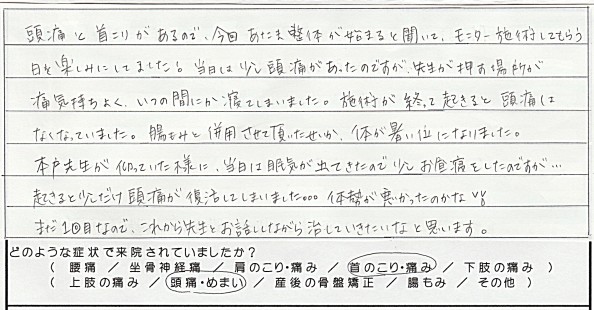 頭痛と首こりがあるので、今回あたま整体が始まると聞いて、モニター施術してもらう
日を楽しみにしてました！当日は少し頭痛があったのですが、先生が押す場所が
痛気持ちよく、いつの間にか寝てしまいました。施術が終って起きると頭痛は
なくなっていました。腸もみと併用させて頂いたせいか、体が暑い位になりました。
本戸先生が仰っていた様に、当日は眠気が出てきたので少しお昼寝をしたのですが…
起きると少しだけ頭痛が復活してしまいました… 体勢が悪かったのかな
まだ1回目なので、これから先生とお話しながら治していきたいなと思います。
どのような症状で来院されていましたか？
（ 腰痛 ／ 坐骨神経痛 ／ 肩のこり・痛み ／ 首のこり・痛み ／ 下肢の痛み ）
（ 上肢の痛み ／ 頭痛・めまい ／ 産後の骨盤矯正 ／ 腸もみ ／ その他 ）